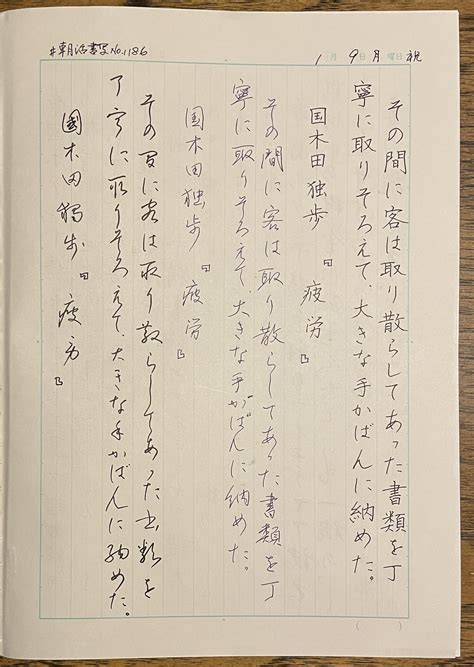 #朝活書写No.1186
1月9日月曜日祝
その間に客は取り散らしてあった書類を丁
寧に取りそろえて、大きな手かばんに納めた。
国木田独歩『疲労』
その間に客は取り散らしてあった書類を丁
寧に取りそろえて、大きな手かばんに納めた。
国木田独歩『疲労』
その間に客は取り散らしてあった書類を
丁寧に取りそろえて、大きな手かばんに納めた。
國木田獨歩『疲労』